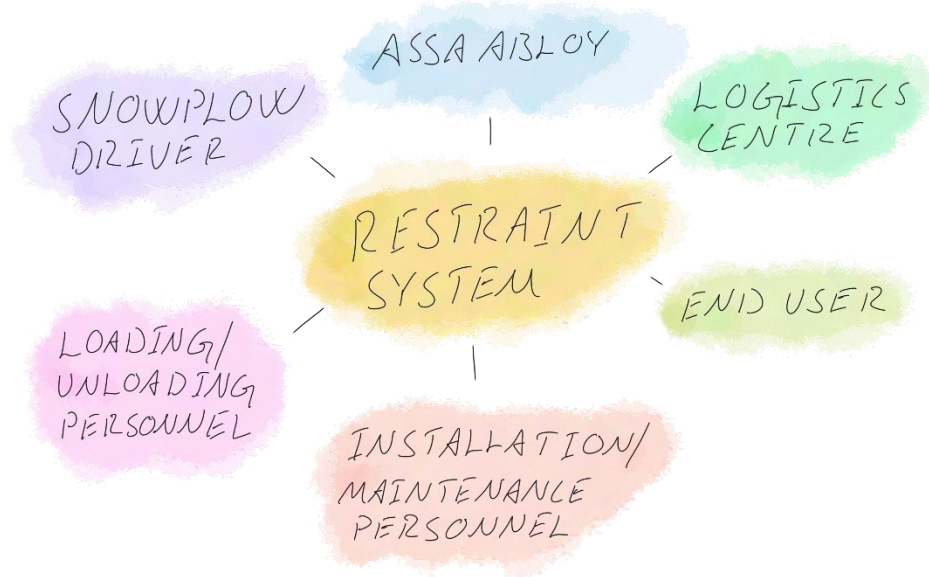 ASSA ABLOY
SNOWPLOW
DRIVER
LOGISTICS
CENTRE
RESTRAINT
SYSTEM
END USER
LOADING/
UNLOADING
PERSONNEL
INSTALLATION/
MAINTENANCE
PERSONNEL